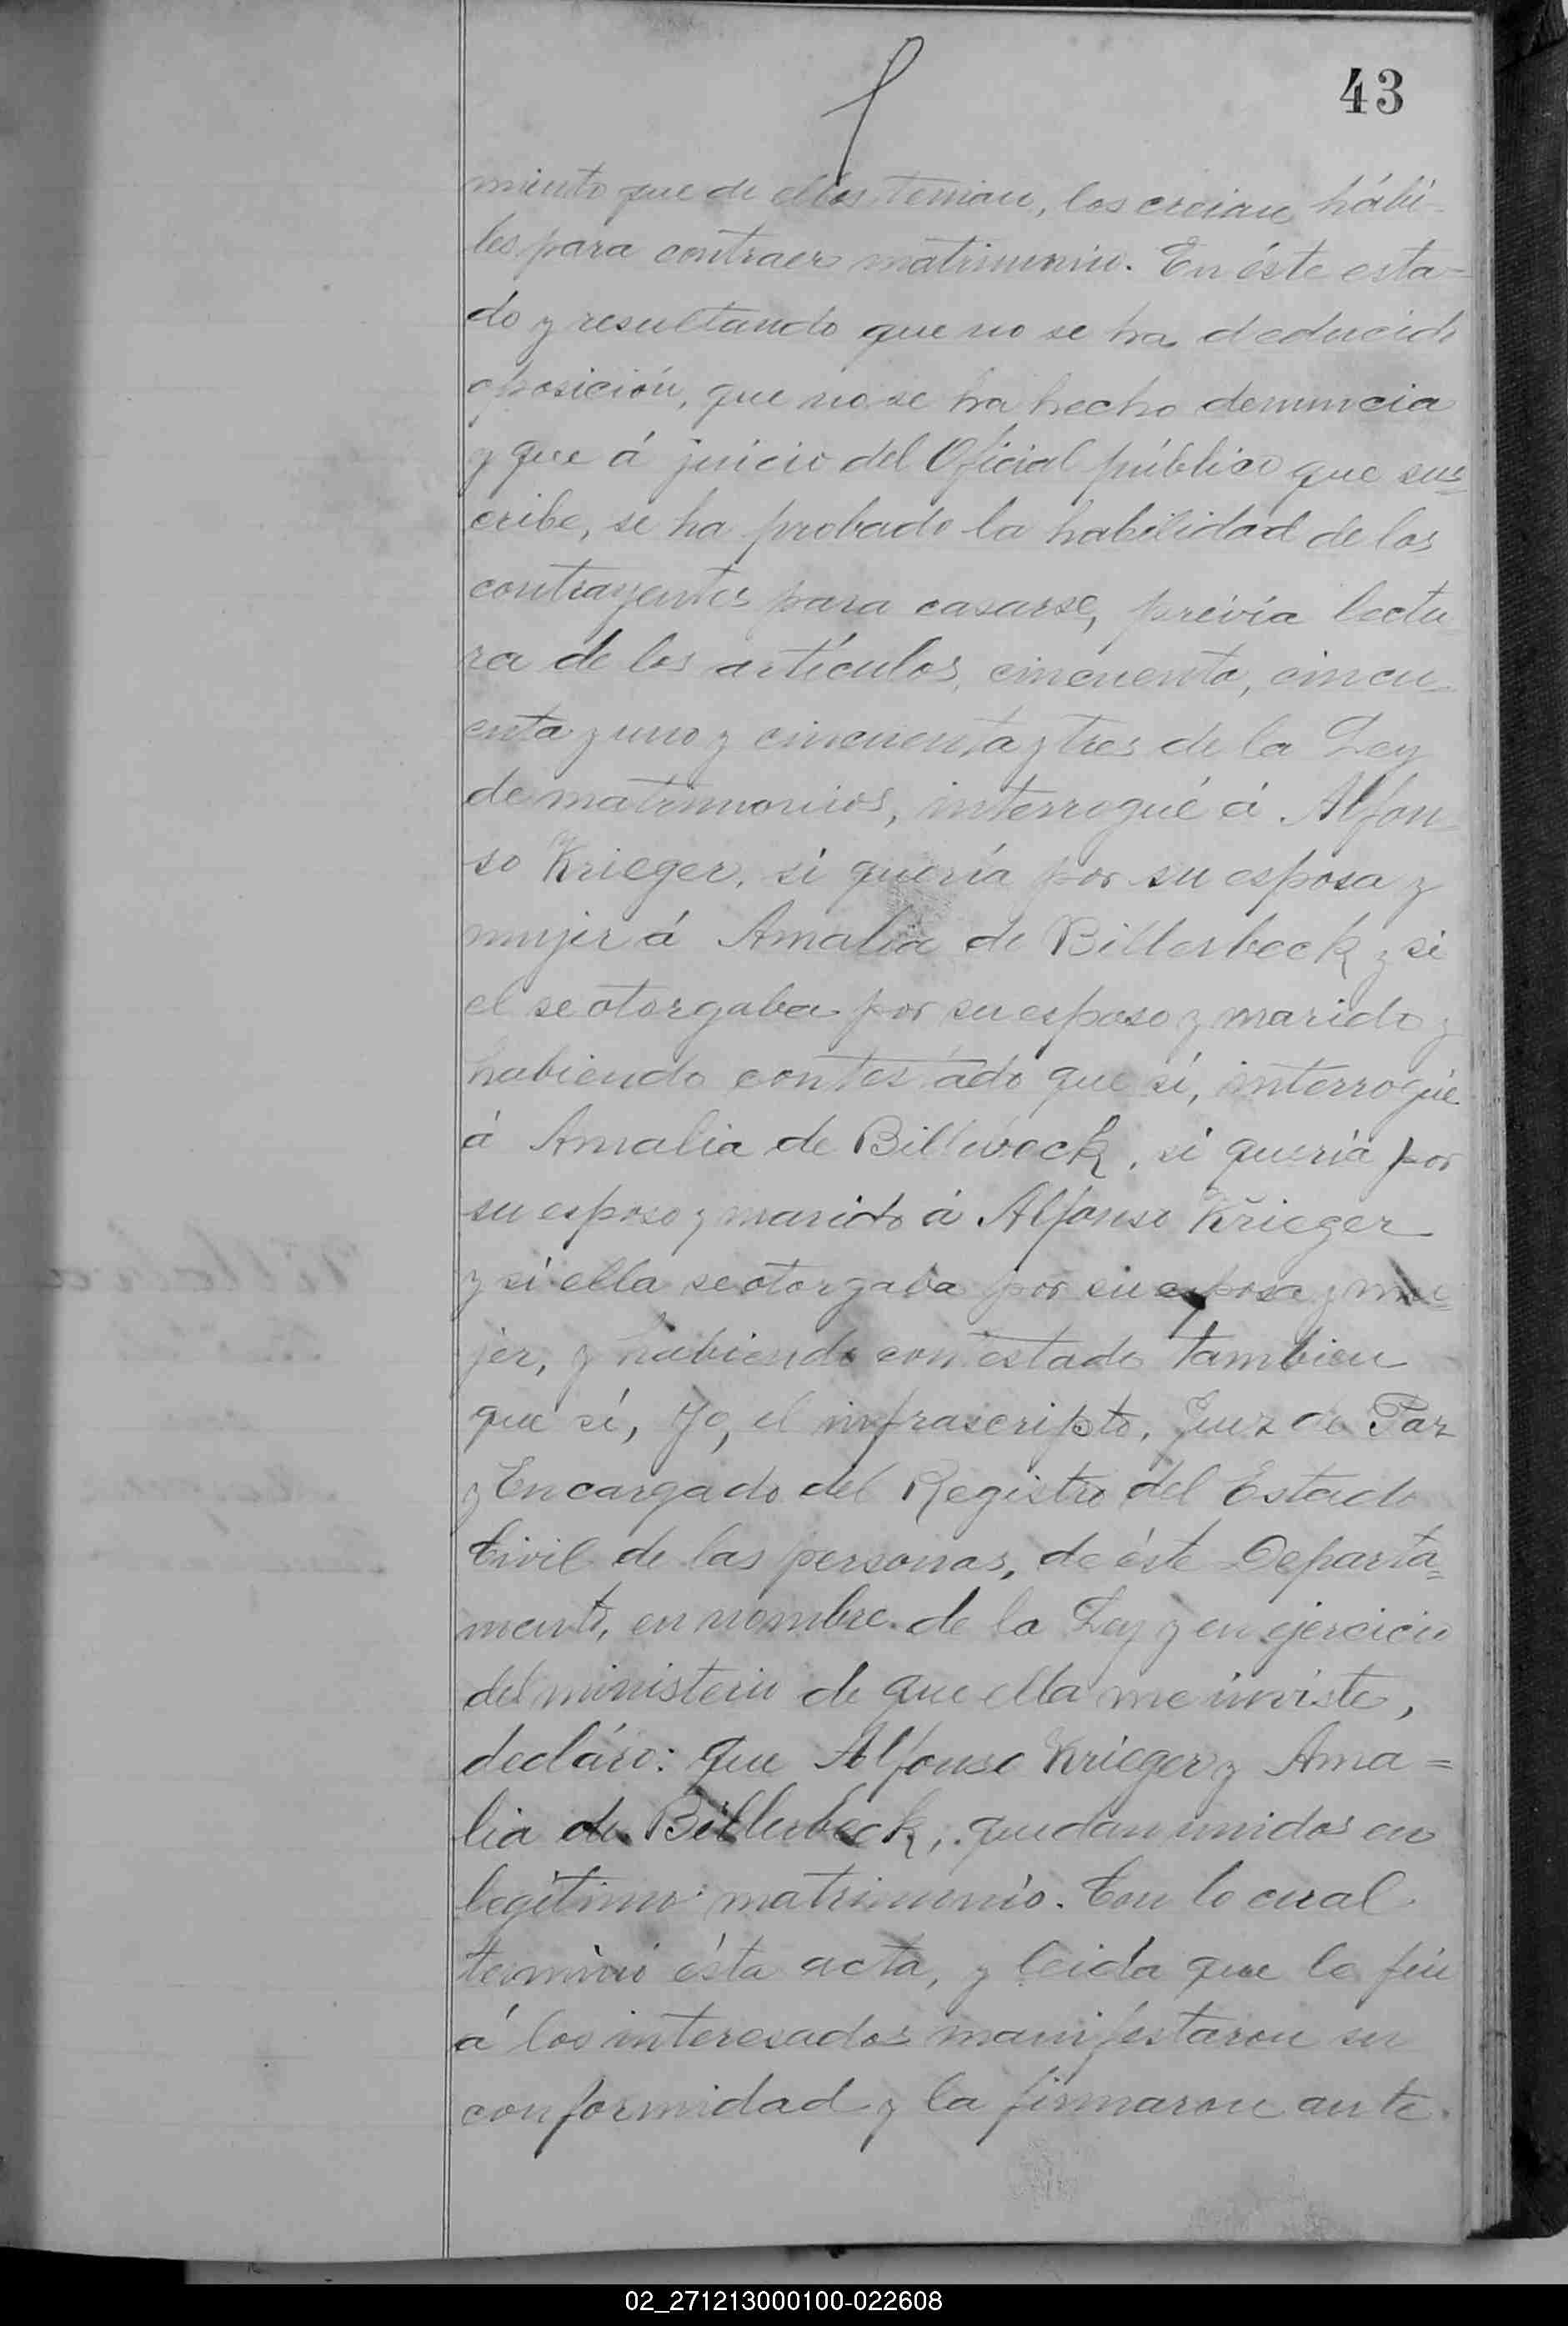 43
miento que de ellos tenian, los creian hábi-
les para contraer matrimonio. En éste esta-
do y resultando que no se ha deducido
oposición, que no se ha hecho denuncia
y que á juicio del Oficial público que sus=
cribe, se ha probado la habilidad de los
contrayentes para casarse, prévia lectu-
ra de los artículos, cincuenta, cincu-
enta y uno y cincuenta y tres de la Ley
de matrimonios, interrogué á Alfon-
so Krieger, si quería por su esposa y
mujer á Amalia de Billerbeck y si
el se otorgaba por su esposo y marido y
habiendo contestado que sí, interrogué
á Amalia de Billerbeck, si quería por
su esposo y marido á Alfonso Krieger
y si ella se otorgaba por su esposa y mu=
jer, y habiendo contestado tambien
que sí, Yo, el infrascripto, Juez de Paz
y Encargado del Registro del Estado
Civil de las personas, de éste Departa=
mento, en nombre de la Ley y en ejercicio
del ministerio de que ella me inviste,
decláro: que Alfonso Krieger y Ama=
lia de Billerbeck, quedan unidos en
legítimo matrimonio. Con lo cual
terminó ésta acta, y leida que le fué
á los interesados manifestaron su
conformidad y la firmaron ante
02_271213000100-022608